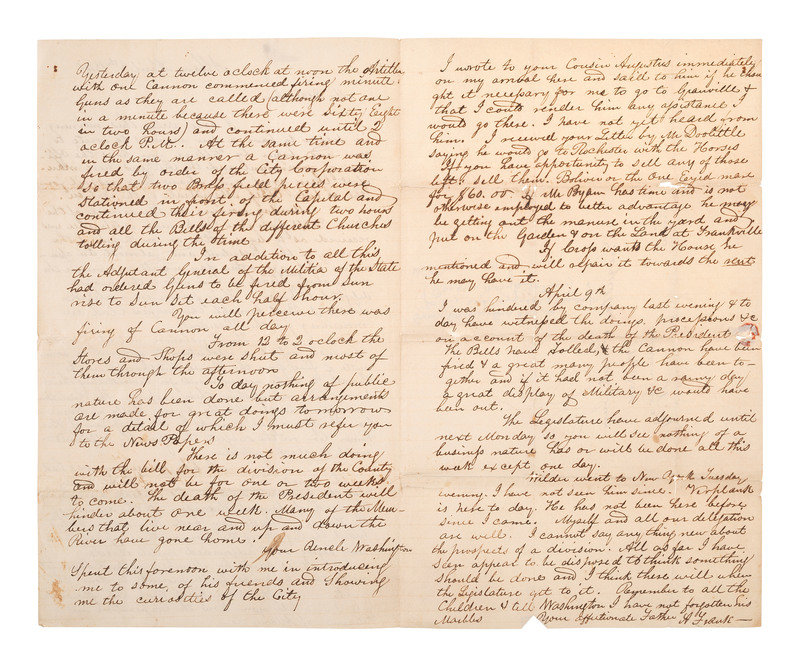 Yesterday at twelve oclock at noon the Artillery
with one Cannon commenced firing minute
Guns as they are called (although not one
in a minute because there were Sixty Eight
in two hours) and continued until 2
oclock P.M. At the same time and
in the same manner a Cannon was
fired by order of the City Corporation
so that two Brass field peices were
Stationed in front of the Capital and
continued their firing during two hours
and all the Bells of the different Churches
tolling during the time
In addition to all this
the Adjutant General of the Militia of the State
had ordered Guns to be fired from Sun
rise to Sun Set each half hour.
You will perceive there was
firing of Cannon all day
From 12 to 2 oclock the
Stores and Shops were shut and most of
them through the afternoon
To day nothing of public
nature has been done but arrangements
are made for great doings tomorrow
for a detail of which I must refer you
to the News Papers
There is not much doing
with the bill for the division of the County
and will not be for one or two weeks
to come. The death of the President will
hinder about one week. Many of the Mem-
bers that live near and up and down the
River have gone home.
Your Uncle Washington
Spent this forenoon with me in introducing
me to some of his friends and Showing
me the curiosities of the City
I wrote to your Cousin Augustus immediately
on my arrival here and said to him if he thou
ght it necessary for me to go to Granville &
that I could render him any assistance I
would go there. I have not yet heard from
him. I received your Letter by Mr
saying he would go to Rochester with the Horses
If you have opportunity to sell any of those
left sell them. Boliver or the One Eeyed mare
for $60.00 If Mr Bryan has time and is not
otherwise employed to better advantage he may
be getting out the manure in the yard and
put on the Garden & on the Land at Frankville
If Cross wants the House he
mentioned and will repair it towards the rent
he may have it.
April 9th
I was hindered by company last evening & to
day have witnessed the doings, processions &c
on account of the death of the President
The Bells have tolled, & the Cannon have been
fired & a great many people have been to-
gether and if it had not been a rainy day
a great display of Military &c would have
been out.
The Legislature have adjourned until
next Monday so you will see nothing of a
business nature has or will be done all this
week except one day.
Wilder went to New York Tuesday
evening. I have not seen him since. Verplank
is here to day. He has not been here before
since I came. Myself and all our deligation
are well. I cannot say any thing new about
the prospects of a division. All as far I have
seen appear to be disposed to think something
should be done and I think there will when
the Legislature get to it. Remember to all the
Children & tell Washington I have not forgotten his
Marbles Your affectionate Father A Frank